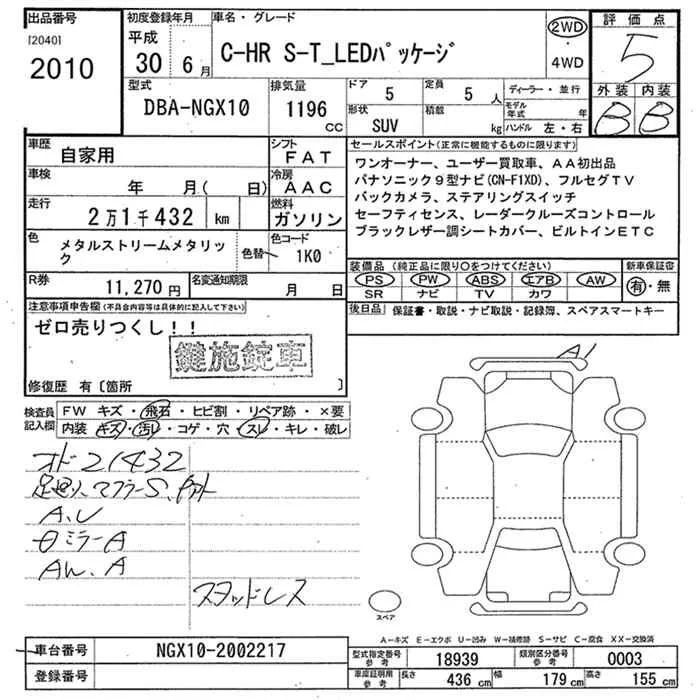 出品番号
[2040]
2010
初度登録年月
平成
30 6月
車名・グレード
C-HR S-T_LEDパッケージ
2WD
4WD
評価点
5
外装 内装
B B
型式
DBA-NGX10
排気量
1196
CC
ドア
5
定員
5 人
形状
SUV
積載
kg
ディーラー・並行
モデル
年式 年
ハンドル 左・右
車歴
自家用
シフト
FAT
車検
年 月( 日)
冷房
AAC
走行
2万1千432 km
燃料
ガソリン
色
メタルストリームメタリック
色替
色コード
1K0
R券
11,270円
名変通知期限
月 日
セールスポイント(正常に機能するものに限ります)
ワンオーナー、ユーザー買取車、AA初出品
パナソニック9型ナビ(CN-F1XD)、フルセグTV
バックカメラ、ステアリングスイッチ
セーフティセンス、レーダークルーズコントロール
ブラックレザー調シートカバー、ビルトインETC
装備品(純正品に限り○をつけてください)
新車保証書
PS PW ABS エアB AW
SR ナビ TV カワ
有・無
後日品
保証書・取説・ナビ取説・記録簿、スペアスマートキー
注意事項申告欄(不具合内容等は具体的に記入して下さい)
ゼロ売りつくし!!
鍵施錠車
修復歴 有〔箇所 〕
検査員
記入欄
FW キズ・飛石・ヒビ割・リペア跡・×要
内装 キズ・汚レ・コゲ・穴・スレ・キレ・破レ
オド21432
マフラーS
A、U
ミラーA
AW、A
スタッドレス
A1
スペア
A-キズ E-エクボ U-凹み W-補修跡 S-サビ C-腐食 XX-交換済
車台番号
NGX10-2002217
登録番号
型式指定番号
参考
18939
類別区分番号
参考
0003
車庫証明用
参考
長さ
436 cm
幅
179 cm
高さ
155 cm